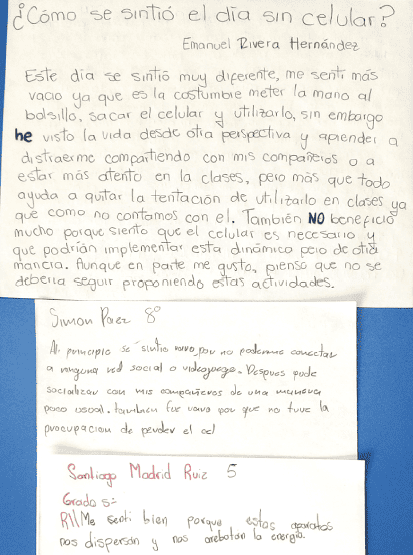 ¿Cómo se sintió el día sin celular?
Emanuel Rivera Hernández
Este día se sintió muy diferente, me sentí más
vacio ya que es la costumbre meter la mano al
bolsillo, sacar el celular y utilizarlo, sin embargo
he visto la vida desde otra perspectiva y aprender a
distraerme compartiendo con mis compañeros o a
estar más atento en la clases, pero más que todo
ayuda a quitar la tentación de utilizarlo en clases ya
que como no contamos con el. También NO beneficio
mucho porque siento que el celular es necesario y
que podrían implementar esta dinámica pero de otra
manera. Aunque en parte me gusto, pienso que no se
debería seguir proponiendo estas actividades.
Simon Paez 8°
Al principio se sintio raro por no podernos conectar
a ninguna red social o videojuego. Despues pude
socializar con mis compañeros de una manera
poco usual. tambien fue raro por que no tuve la
preocupacion de perder el cel
Santiago Madrid Ruiz 5
Grado 5=
R// Me senti bien porque estos aparatos
nos dispersan y nos arebatan la energia.